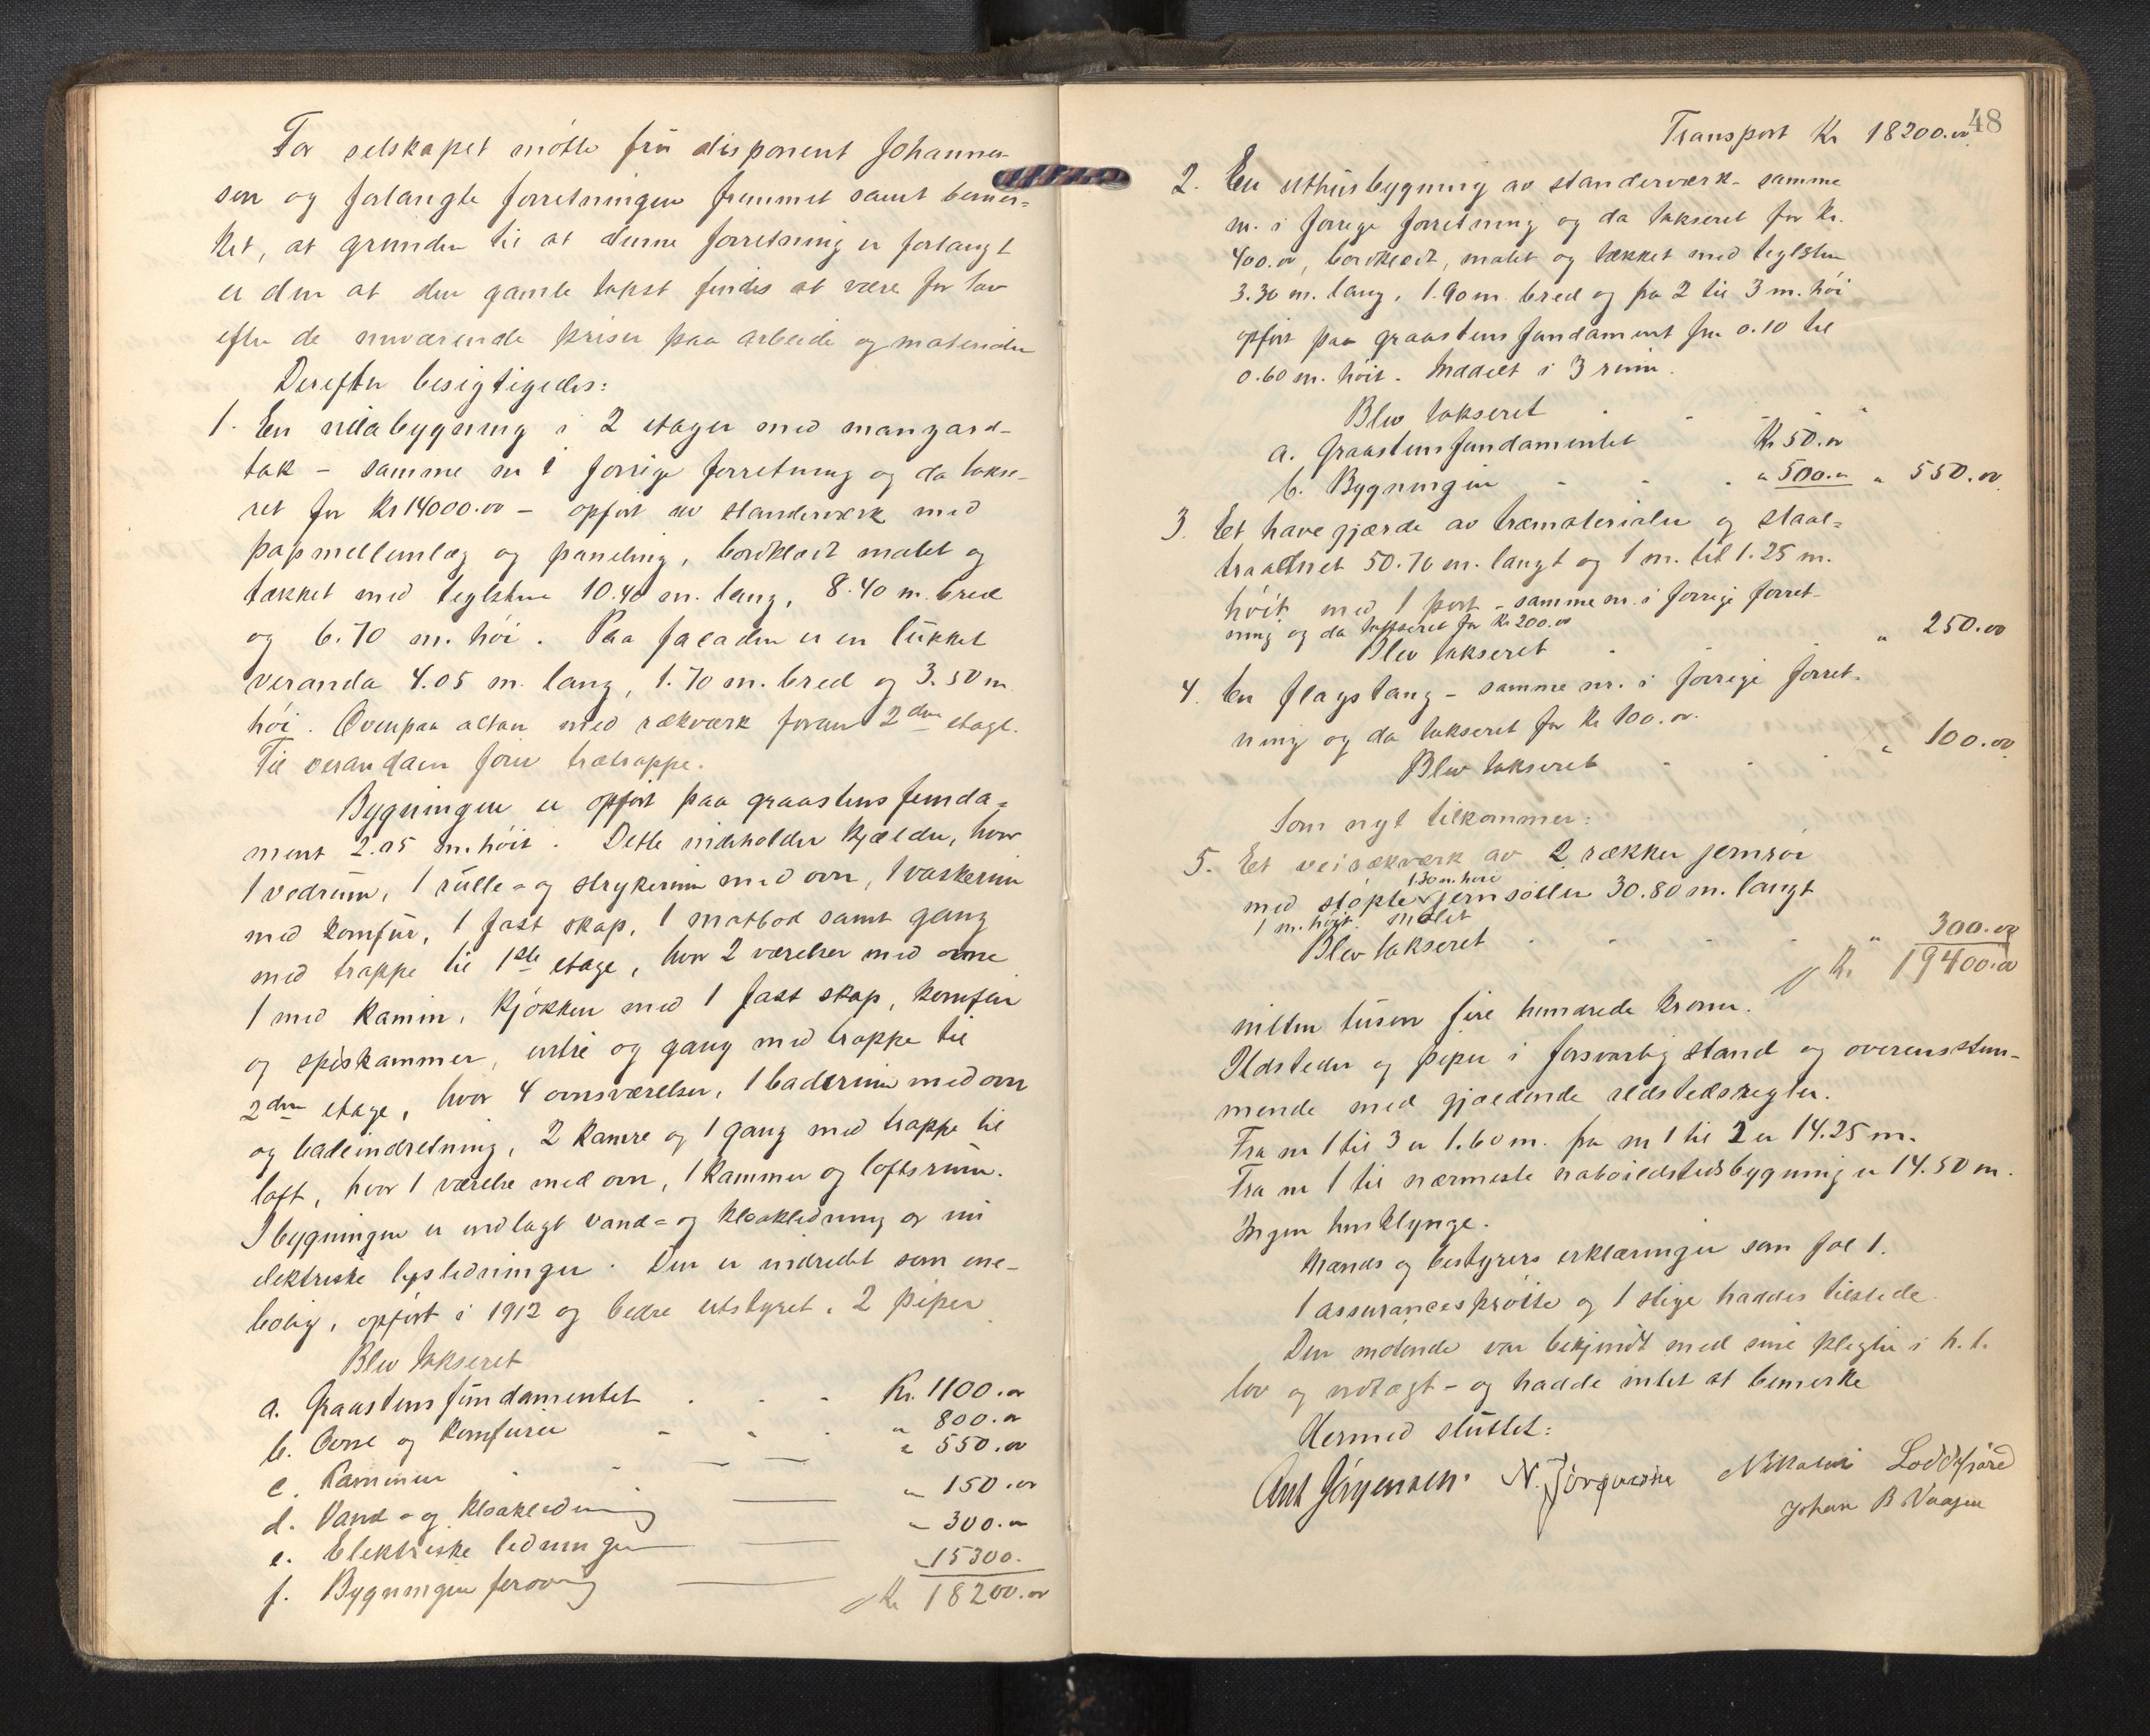 For selskapet møtte fru disponent Johannes-
sen og forlangte forretningen fremmet samt bemer-
ket, at grunden til at denne forretning er forlangt
er den at den gamle takst findes at være for lav
efter de nuværende priser paa arbeide og materialer
Derefter besigtigedes:
1. En villabygning i 2 etager med manzard-
tak - samme nr i forrige forretning og da takse-
ret for Kr 14000.00 - opført av standerværk med
papmellemlæg og paneling, bordklædt malet og
tækket med teglsten 10.40 m. lang, 8.40 m. bred
og 6.70 m. høi. Paa facaden er en lukket
veranda 4.05 m. lang, 1.70 m. bred og 3.50 m
høi. Ovenpaa altan med rækværk foran 2den etage.
Til verandaen fører trætrappe.
Bygningen er opført paa graastensfunda-
ment 2.05 m. høit. Dette indeholder kjælder, hvor
1 vedrum, 1 rulle- og strykerum med ovn, 1 vaskerum
med komfur, 1 fast skap, 1 matbod samt gang
med trappe til 1ste etage, hvor 2 værelser med ovne
1 med kamin, kjøkken med 1 fast skap, komfur
og spiskammer, entré og gang med trappe til
2den etage, hvor 4 ovnsværelser, 1 baderum med ovn
og badeindretning, 2 kamre og 1 gang med trappe til
loft, hvor 1 værelse med ovn, 1 kammer og loftsrum.
I bygningen er indlagt vand- og kloakledning og nu
elektriske lysledninger. Den er indredet som ene-
bolig, opført i 1912 og bedre utstyret. 2 piper
Blev takseret
a. Graastensfundamentet Kr. 1100.00
b. Ovne og komfurer " 800.00
c. Kaminen " 550.00
d. Vand- og kloakledning " 150.00
e. Elektriske ledninger " 300.00
f. Bygningen forøvrig " 15300.
Kr 18200.00
48
Transport Kr 18200.00
2. En uthusbygning av standerværk - samme
nr. i forrige forretning og da takseret for Kr.
400.00, bordklædt, malet og tækket med teglsten
3.30 m. lang, 1.90 m. bred og fra 2 til 3 m. høi
opført paa graastensfundament fra 0.10 til
0.60 m. høit. Inddelt i 3 rum.
Blev takseret
a. Graastensfundamentet Kr 50.00
b. Bygningen " 500.00 " 550.00
3. Et havegjærde av træmaterialer og staal-
traadnet 50.70 m. langt og 1 m. til 1.25 m.
høit med 1 port - samme nr. i forrige forret-
ning og da takseret for Kr 200.00
Blev takseret " 250.00
4. En flagstang - samme nr. i forrige forret-
ning og da takseret for Kr 100.00.
Blev takseret " 100.00
Som nyt tilkommer:
5. Et veirækværk av 2 rækker jernrør
1.30 m. høie
med støpte jernsøiler 30.80 m. langt
1 m. høit. malet
Blev takseret " 300.00
Kr. 19400.00
nitten tusen fire hundrede kroner.
Ildsteder og piper i forsvarlig stand og overensstem-
mende med gjældende ildstedsregler.
Fra nr 1 til 3 er 1.60 m. fra nr 1 til 2 er 14.25 m.
Fra nr 1 til nærmeste naboildstedsbygning er 14.50 m.
Ingen husklynge.
Mænds og bestyrers erklæringer som fol 1.
1 assurancesprøite og 1 stige haddes tilstede.
Den møtende var bekjendt med sine pligter i h.t.
lov og vedtægt - og hadde intet at bemerke
Hermed sluttet:
Ant Jørgensen. N. Jørgensen Nikolai Loddefjord
Johan B Vaagen